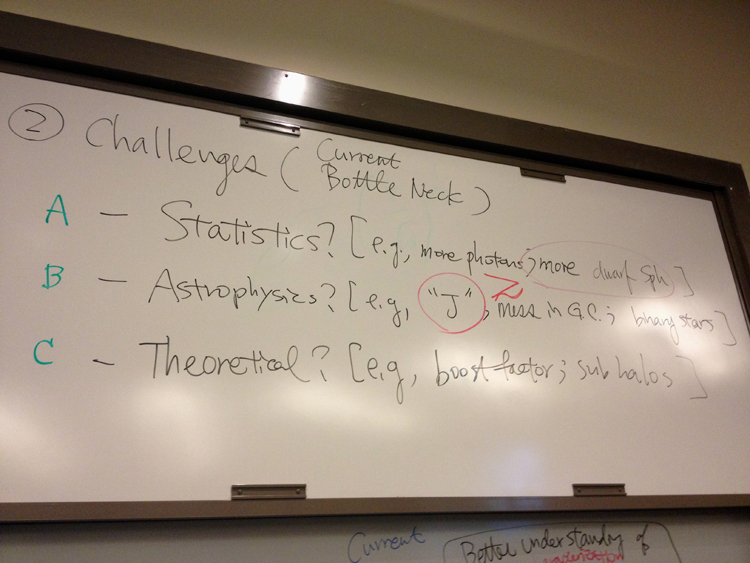 ② Challenges ( Current
Bottle Neck )
A — Statistics? [e.g., more photons; more dwarf Sph]
B — Astrophysics? [e.g., "J", mess in G.C.; binary stars]
C — Theoretical? [e.g., boost factor; sub halos ]
Current
Better understanding of